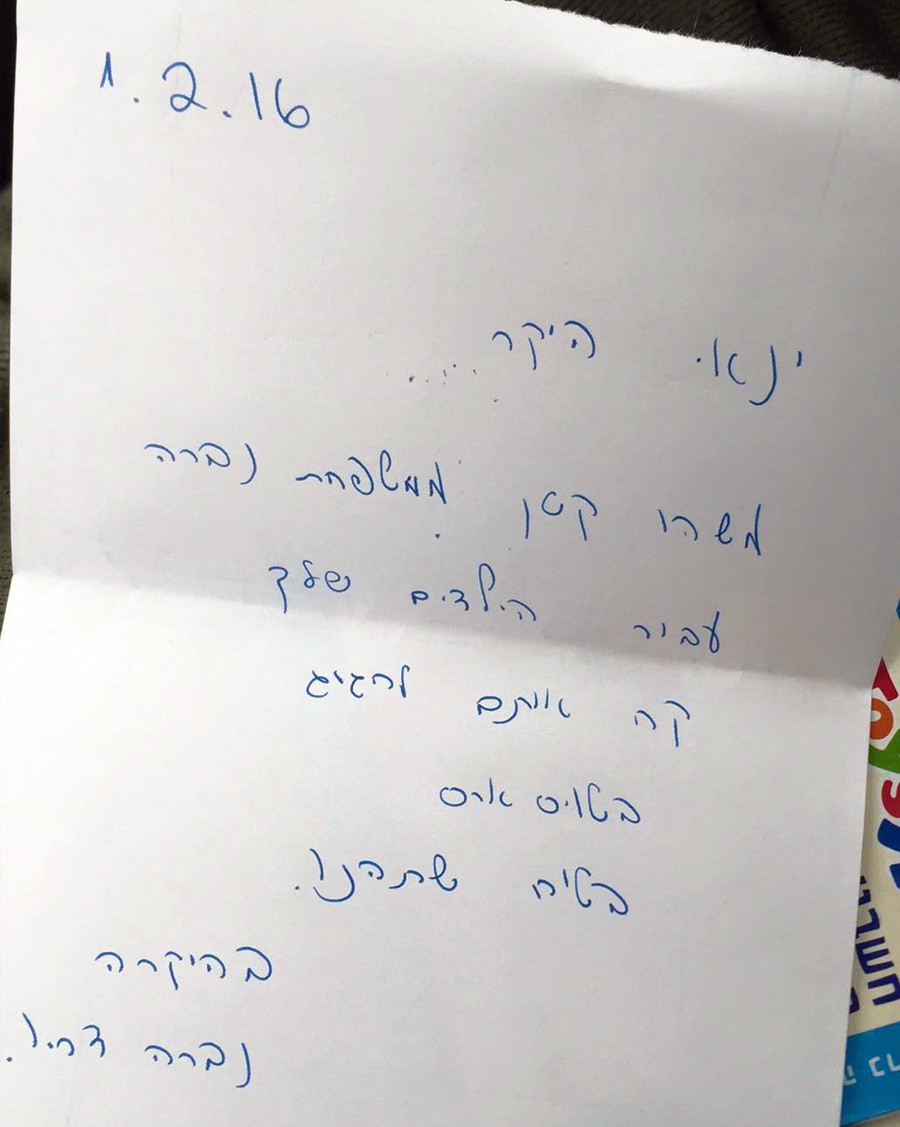 1.2.16
ינאי היקר
משהו קטן ממשפחת נברה
עביר הילדים שלך
קח אותם לחגיג
בטויס ארס
בטיח שתהנו.
בהיקרה
נברה